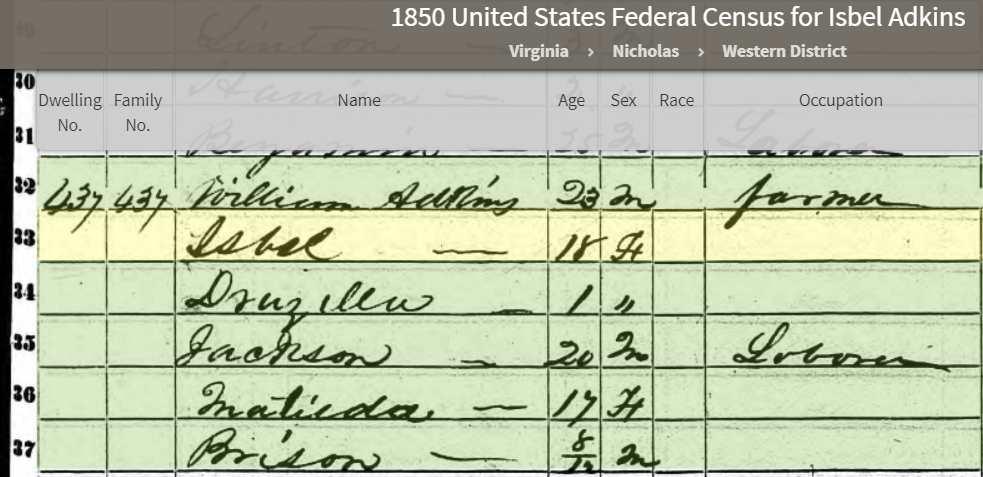 1850 United States Federal Census for Isbel Adkins
Virginia > Nicholas > Western District
Dwelling No. Family No. Name Age Sex Race Occupation
32 437 437 William Adkins 23 m farmer
33 Isbel — 18 F
34 Druzilla — 1 "
35 Jackson — 20 m Laborer
36 Matilda — 17 F
37 Brison — 8/12 m